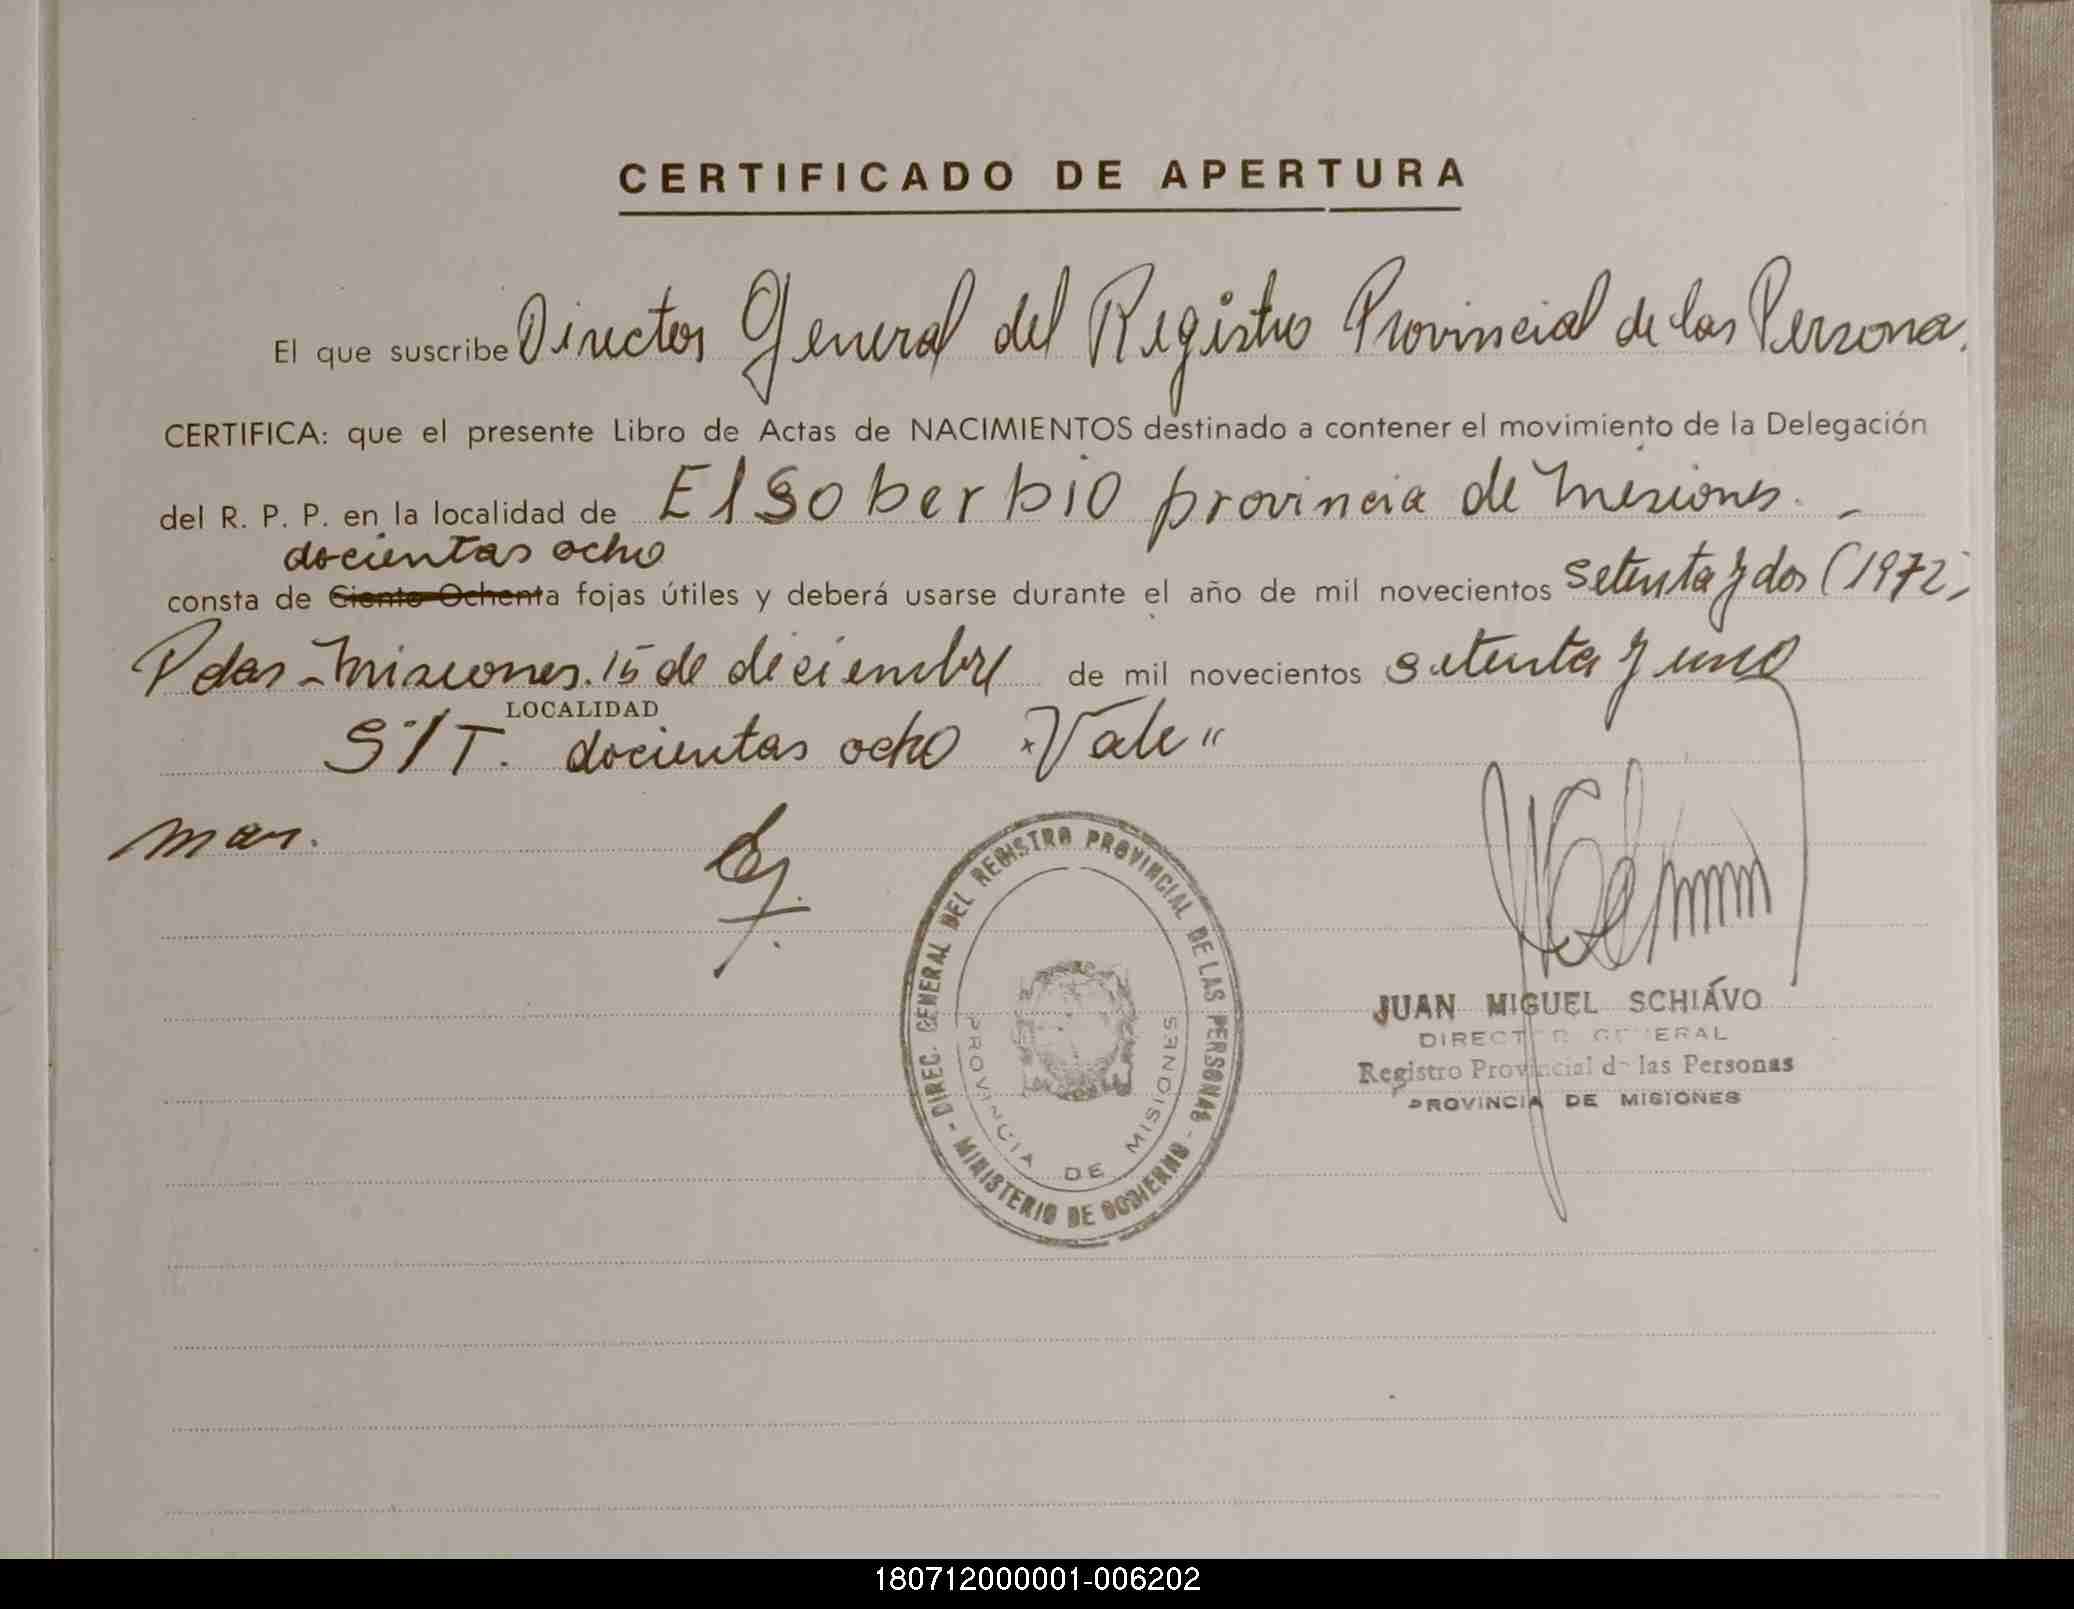 CERTIFICADO DE APERTURA
El que suscribe Director General del Registro Provincial de las Persona.
CERTIFICA: que el presente Libro de Actas de NACIMIENTOS destinado a contener el movimiento de la Delegación
del R. P. P. en la localidad de El Soberbio provincia de Misiones. -
docientas ocho
consta de Ciento Ochenta fojas útiles y deberá usarse durante el año de mil novecientos setenta y dos (1972)
Pdas - Misiones. 15 de diciembre de mil novecientos setenta y uno
LOCALIDAD
S/T. docientas ocho "Vale"
mar.
DIREC. GENERAL DEL REGISTRO PROVINCIAL DE LAS PERSONAS - MINISTERIO DE GOBIERNO -
PROVINCIA DE MISIONES
JUAN MIGUEL SCHIAVO
DIRECTOR GENERAL
Registro Provincial de las Personas
PROVINCIA DE MISIONES
180712000001-006202